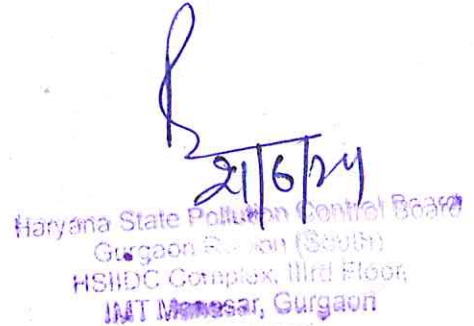 21/6/24
Haryana State Pollution Control Board
Gurgaon Region (South)
HSIIDC Complex, IIIrd Floor,
IMT Manesar, Gurgaon